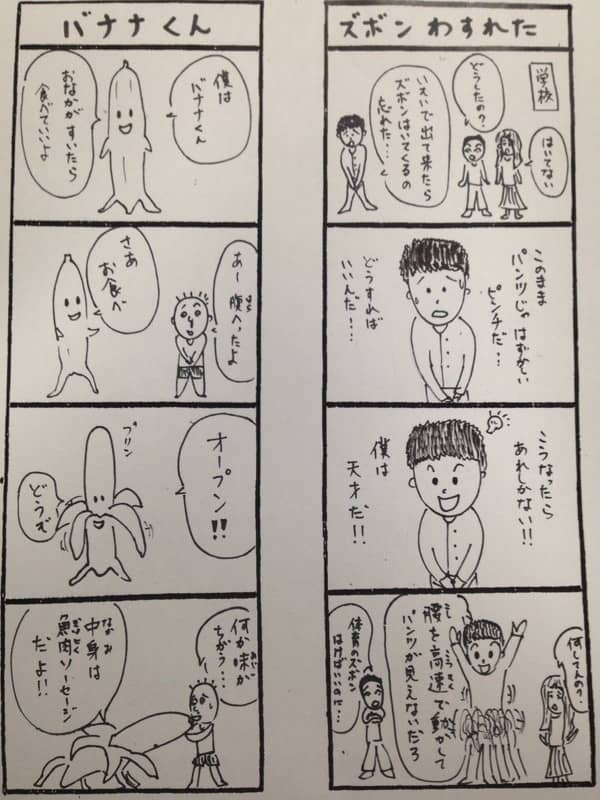 ズボンわすれた
学校
はいてない
どうしたの?
いそいで出て来たら
ズボンはいてくるの
忘れた・・・
このまま
パンツじゃはずかしい
ピンチだ・・
どうすれば
いいんだ!・・
こうなったら
あれしかない!!
僕は
天才だ!!
何してんの?
腰を高速で動かして
パンツが見えないだろ
体育のズボン
はけばいいのに…
バナナくん
僕は
バナナくん
おなかがすいたら
食べていいよ
あー腹へったよ
さあ
お食べ
オープン!!
プリン
どうぞ
何か味が
ちがう・・・
中身は
魚肉ソーセージ
だよ!!